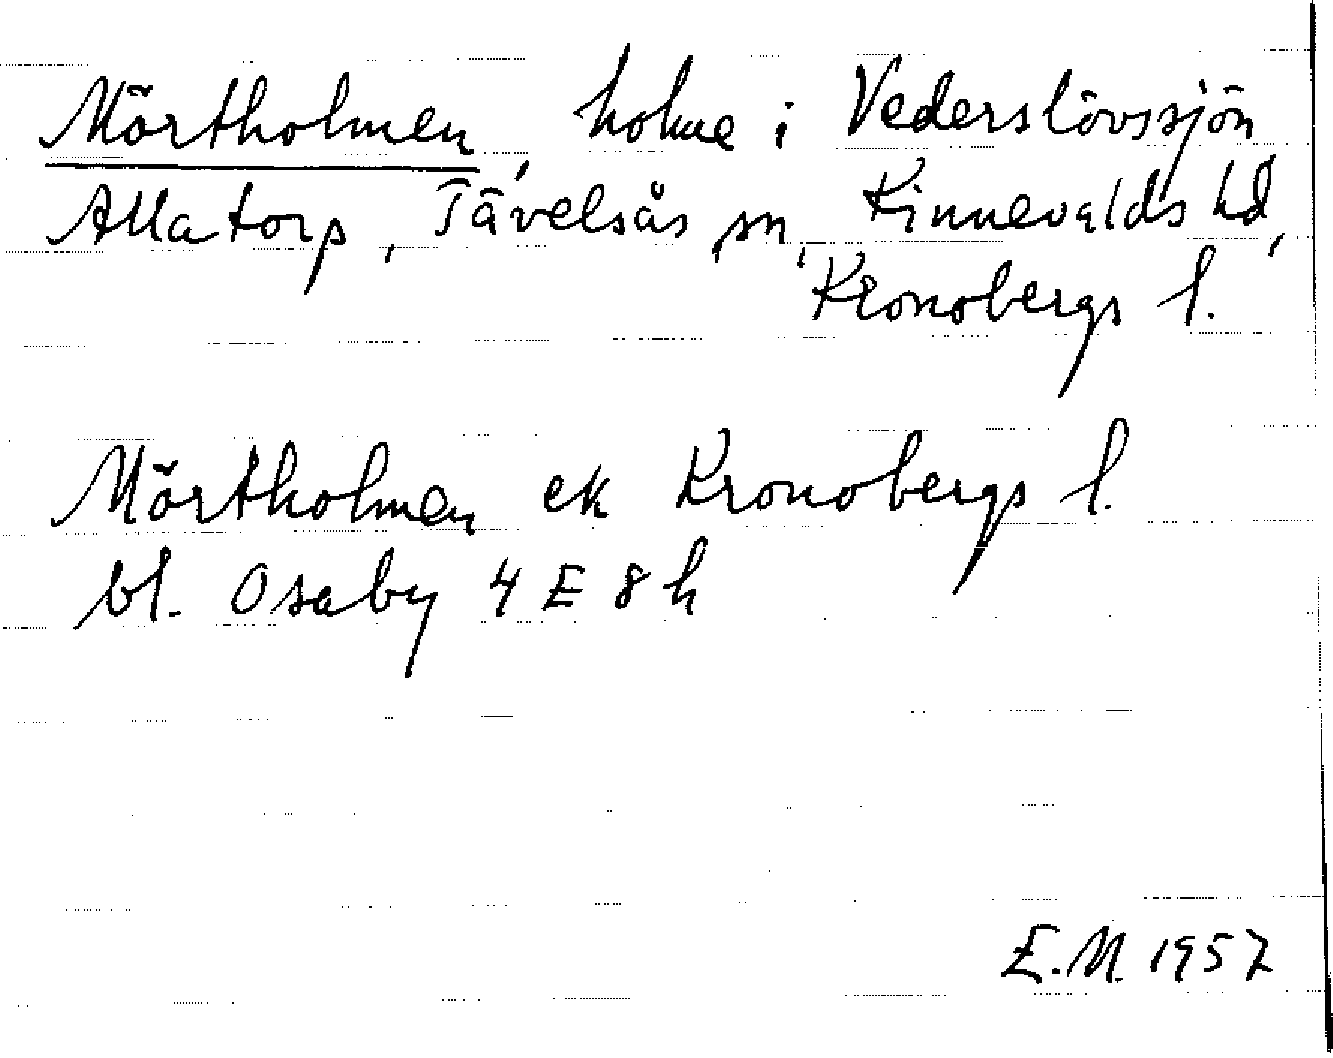 Mörtholmen, holme i Vederslövssjön
Allatorp, Tävelsås sn, Kinnevalds hd,
Kronobergs l.
Mörtholmen ek Kronobergs l.
bl. Osaby 4 E 8 h
E.M. 1957